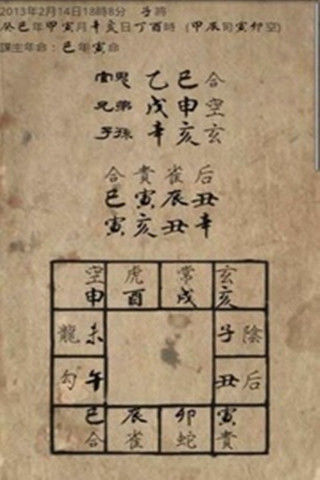 2013年2月14日18時8分 子將
癸巳年甲寅月辛亥日丁酉時 (甲辰旬寅卯空)
課主年命:巳年寅命
官鬼 乙巳合
兄弟 戊申空
子孫 辛亥玄
合貴雀后
巳寅辰丑
寅亥丑辛
空虎常玄
申酉戌亥
龍未 子陰
勾午 丑后
巳辰卯寅
合雀蛇貴